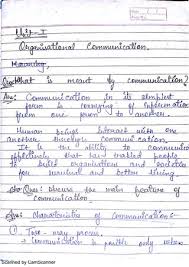 Unit - I
Organisational Communication.
Meaning
Ques What is meant by communication?
Ans: Communication in its simplest
form is conveying of information
from one person to another.
Human beings interact with one
another through communication.
It is the ability to communicate
effectively that has enabled people
to build organisations and societies
for survival and better living.
Ques: Discuss the main feature of
communication.
Ans: Characteristics of Communication:
Two-way process
Communication is possible only when
Scanned by CamScanner